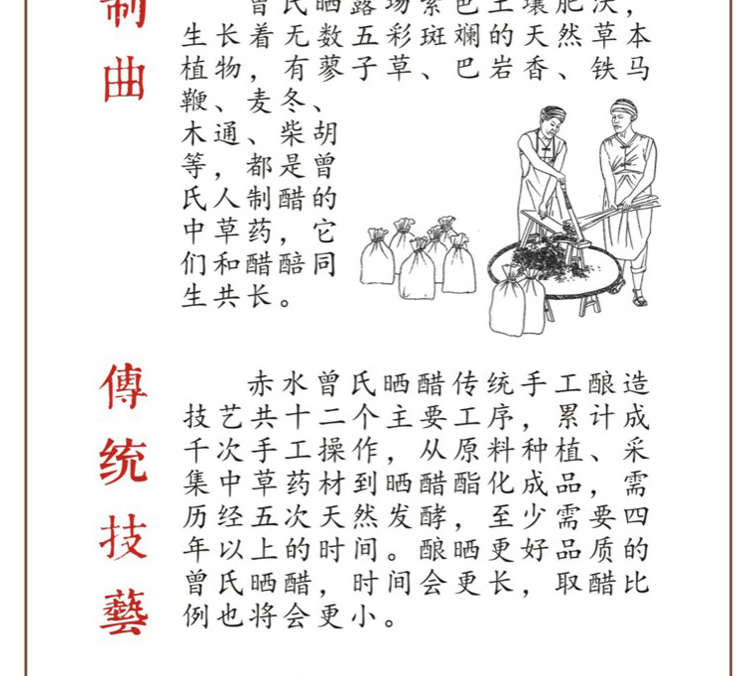 制曲
曾氏晒露场紫色土壤肥沃，
生长着无数五彩斑斓的天然草本
植物，有蓼子草、巴岩香、铁马
鞭、麦冬、
木通、柴胡
等，都是曾
氏人制醋的
中草药，它
们和醋醅同
生共长。
傳统技藝
赤水曾氏晒醋传统手工酿造
技艺共十二个主要工序，累计成
千次手工操作，从原料种植、采
集中草药材到晒醋酯化成品，需
历经五次天然发酵，至少需要四
年以上的时间。酿晒更好品质的
曾氏晒醋，时间会更长，取醋比
例也将会更小。